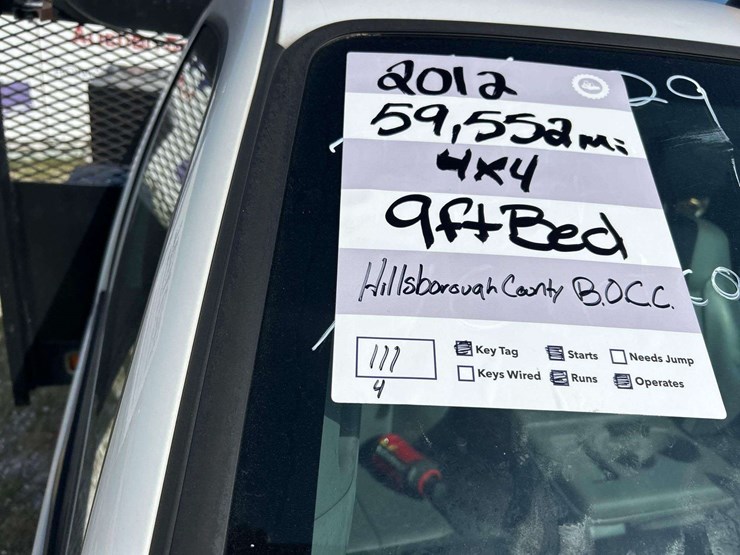 2012
59,552 mi
4x4
9ft Bed
Hillsborough County B.O.C.C.
111
4
Key Tag Starts Needs Jump
Keys Wired Runs Operates
29